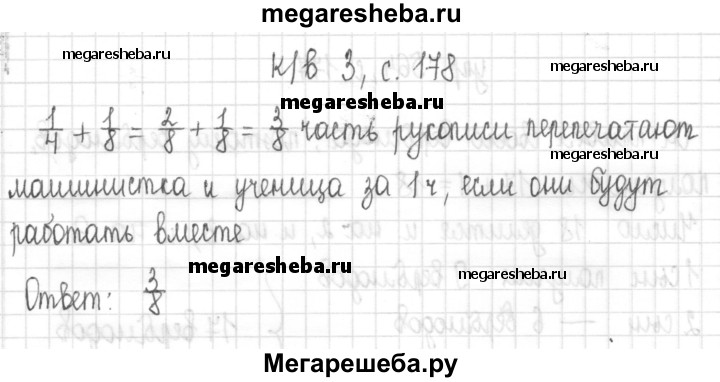 megaresheba.ru
megaresheba.ru
к/в 3, с. 178
megaresheba.ru
megaresheba.ru
1/4 + 1/8 = 2/8 + 1/8 = 3/8 часть рукописи перепечатают
megaresheba.ru
машинистка и ученица за 1 ч, если они будут
работать вместе
megaresheba.ru
megaresheba.ru
Ответ: 3/8
Мегарешеба.ру